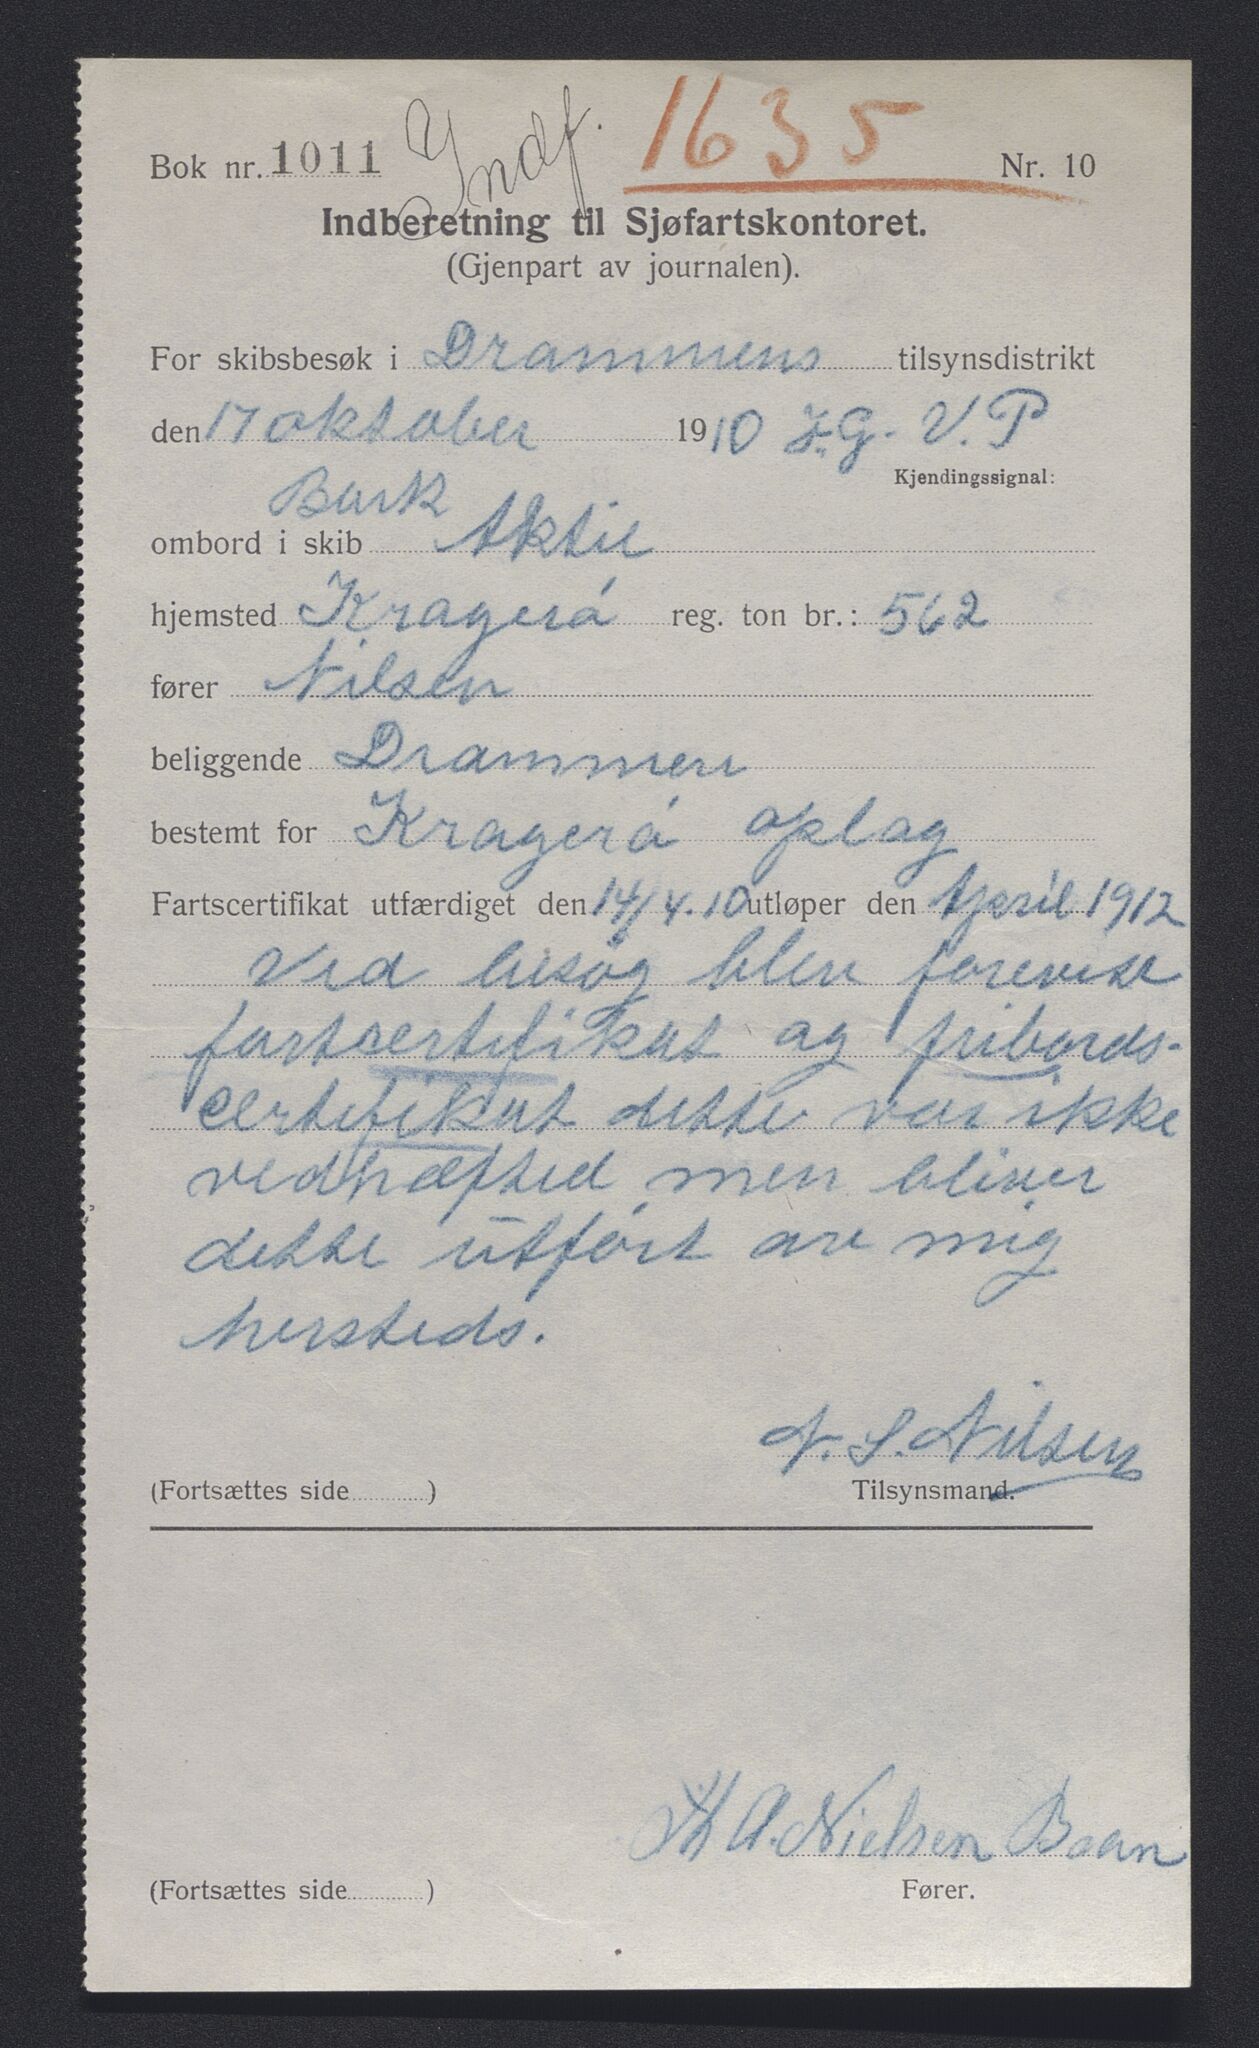 Indf. 1635
Bok nr. 1011 Nr. 10
Indberetning til Sjøfartskontoret.
(Gjenpart av journalen).
For skibsbesøk i Drammens tilsynsdistrikt
den 17 oktober 1910 J.G.V.P
Kjendingssignal:
Bark
ombord i skib Aktiv
hjemsted Kragerö reg. ton br.: 562
fører Nilsen
beliggende Drammen
bestemt for Kragerö oplag
Fartscertifikat utfærdiget den 14/4.10 utløper den April 1912
Ved besög blev forevist
fartsertifikat og fribords-
certifikat dette var ikke
vedhæfted men bliver
dette utfört av mig
hersteds.
N. S. Nilsen
(Fortsættes side ) Tilsynsmand.
Th A. Nielsen Baan
(Fortsættes side ) Fører.